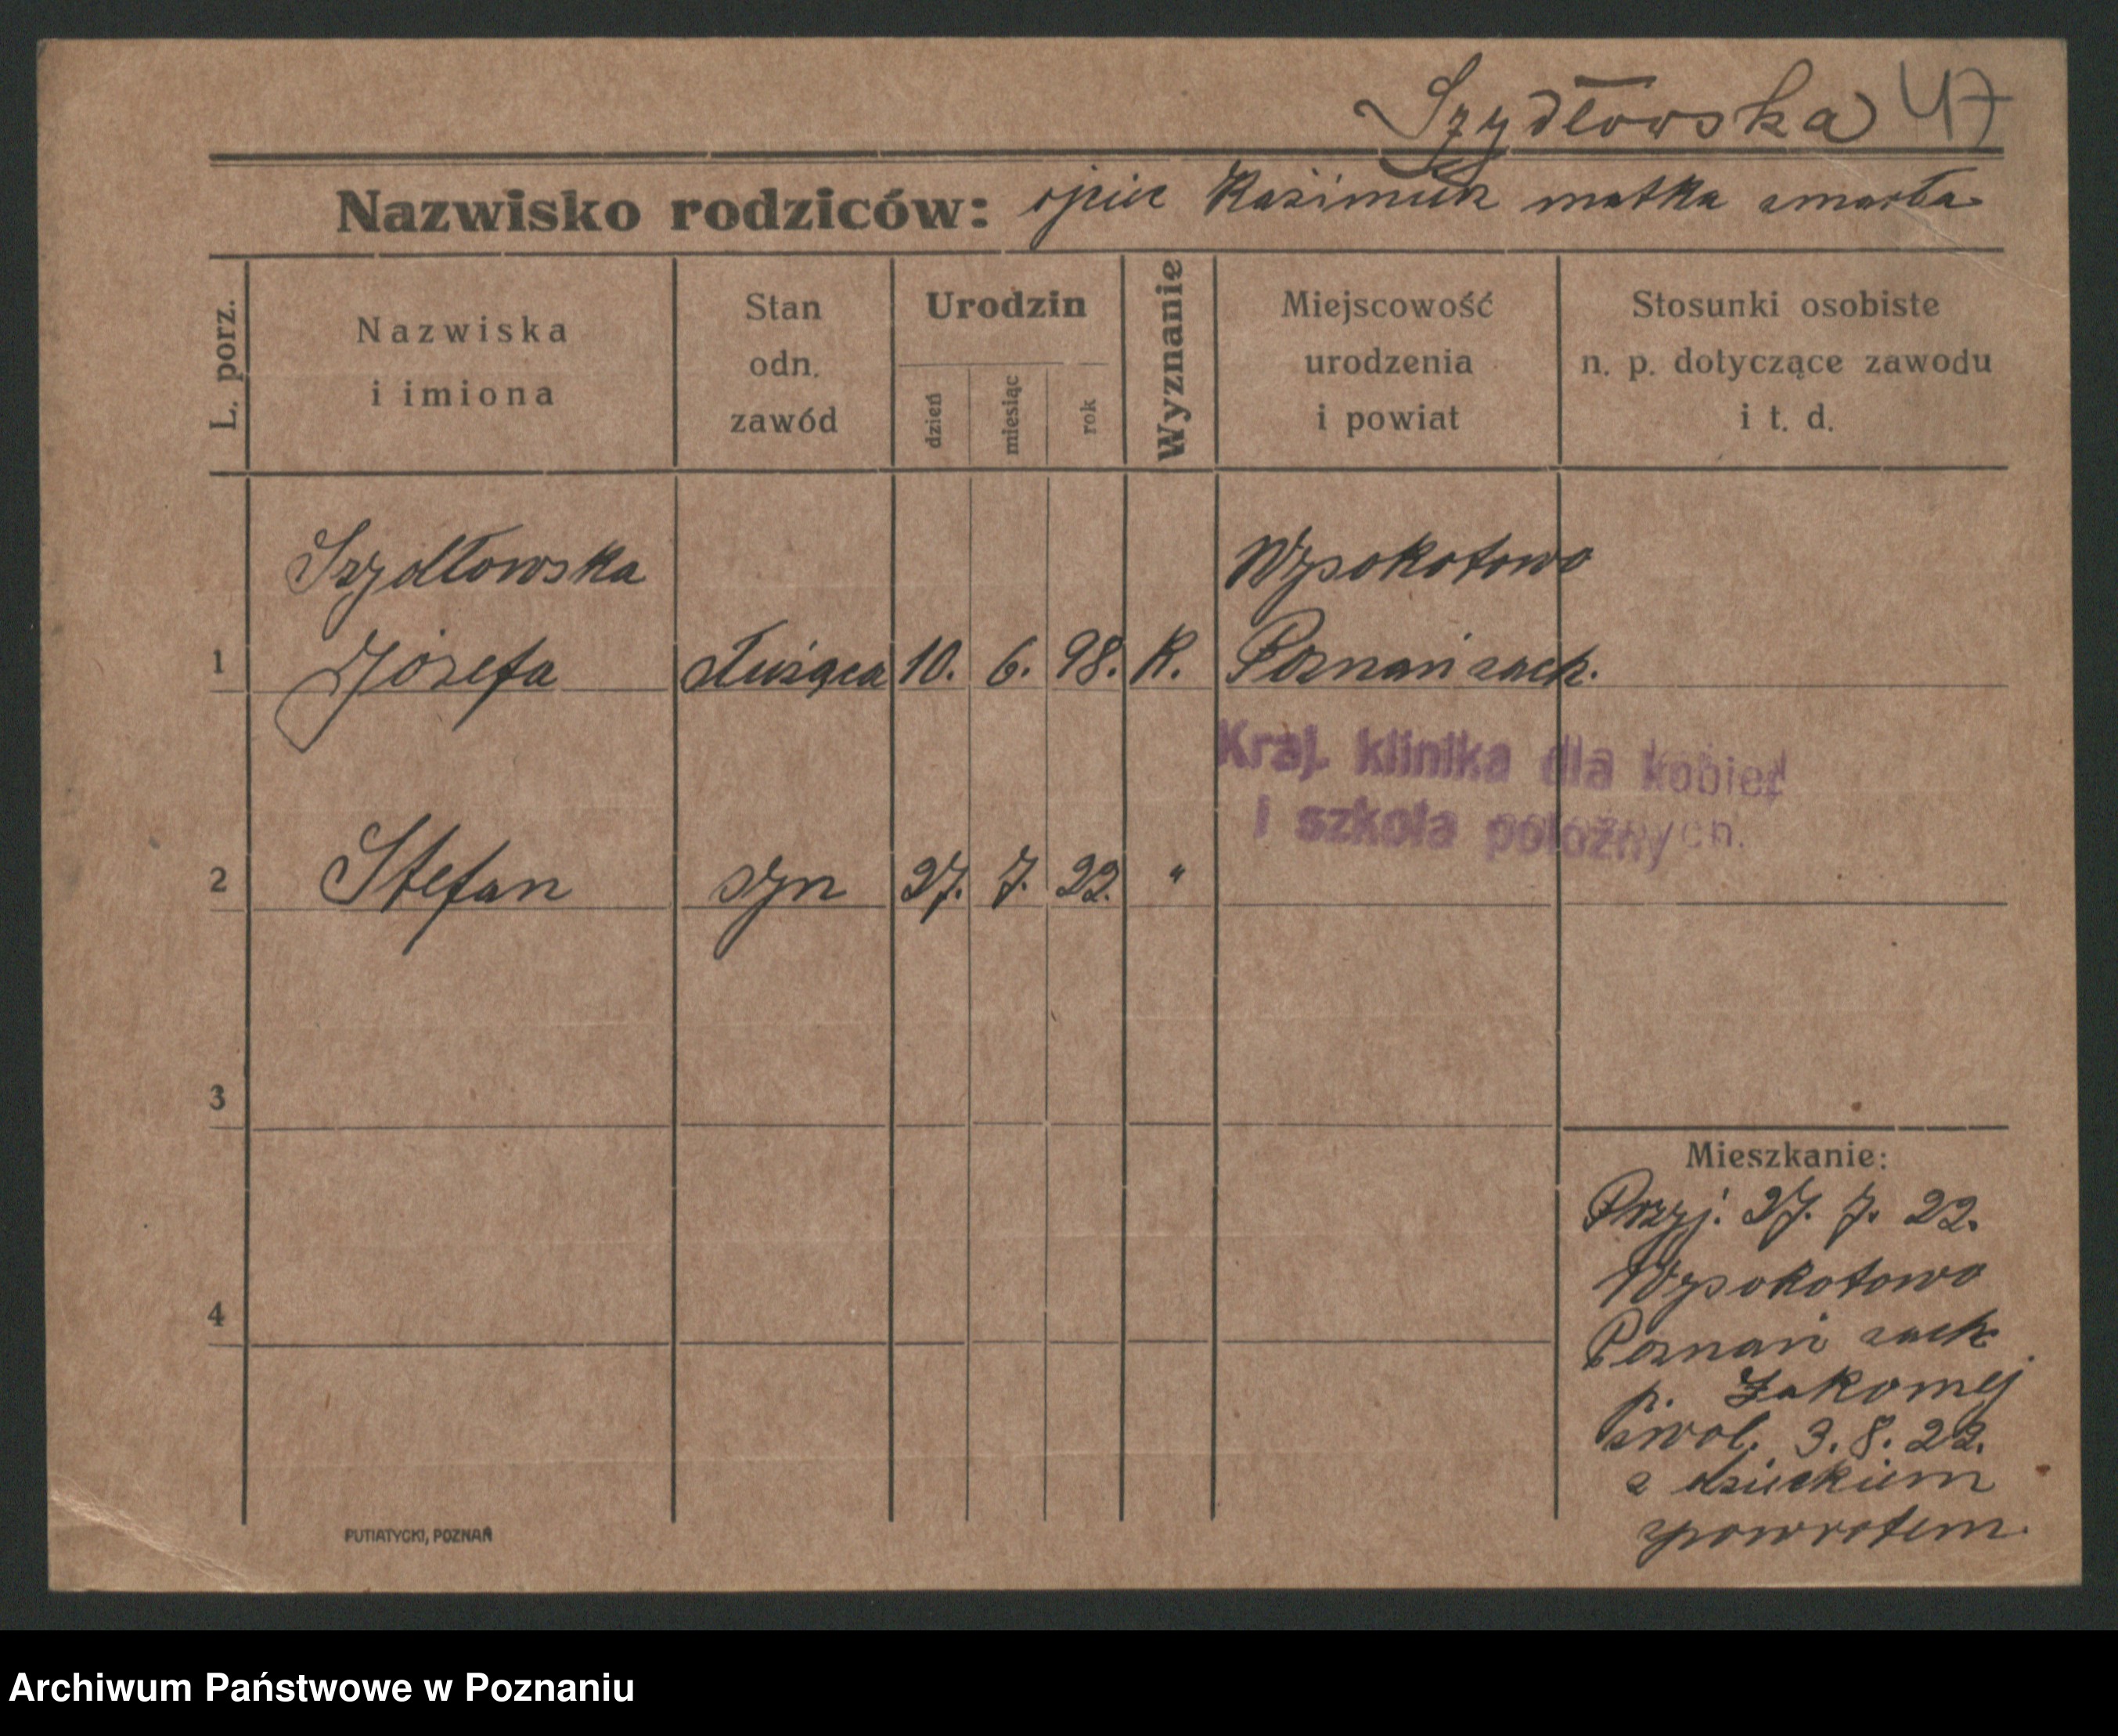 Szydłowska 47
Nazwisko rodziców: ojciec Kazimierz matka zmarła
L. porz.
Nazwiska
i imiona
Stan
odn.
zawód
Urodzin
dzień
miesiąc
rok
Wyznanie
Miejscowość
urodzenia
i powiat
Stosunki osobiste
n. p. dotyczące zawodu
i t. d.
Szydłowska
Wysokotowo
1 Józefa służąca 10. 6. 98. K. Poznań zach.
Kraj. klinika dla kobiet
i szkoła położnych.
2 Stefan syn 27. 7. 22. "
3
4
Mieszkanie:
Przyj. 27. 7. 22.
Wysokotowo
Poznań zach.
p.
zwol. 3. 8. 22.
z dzieckiem
zpowrotem.
PUTIATYCKI, POZNAŃ
Archiwum Państwowe w Poznaniu